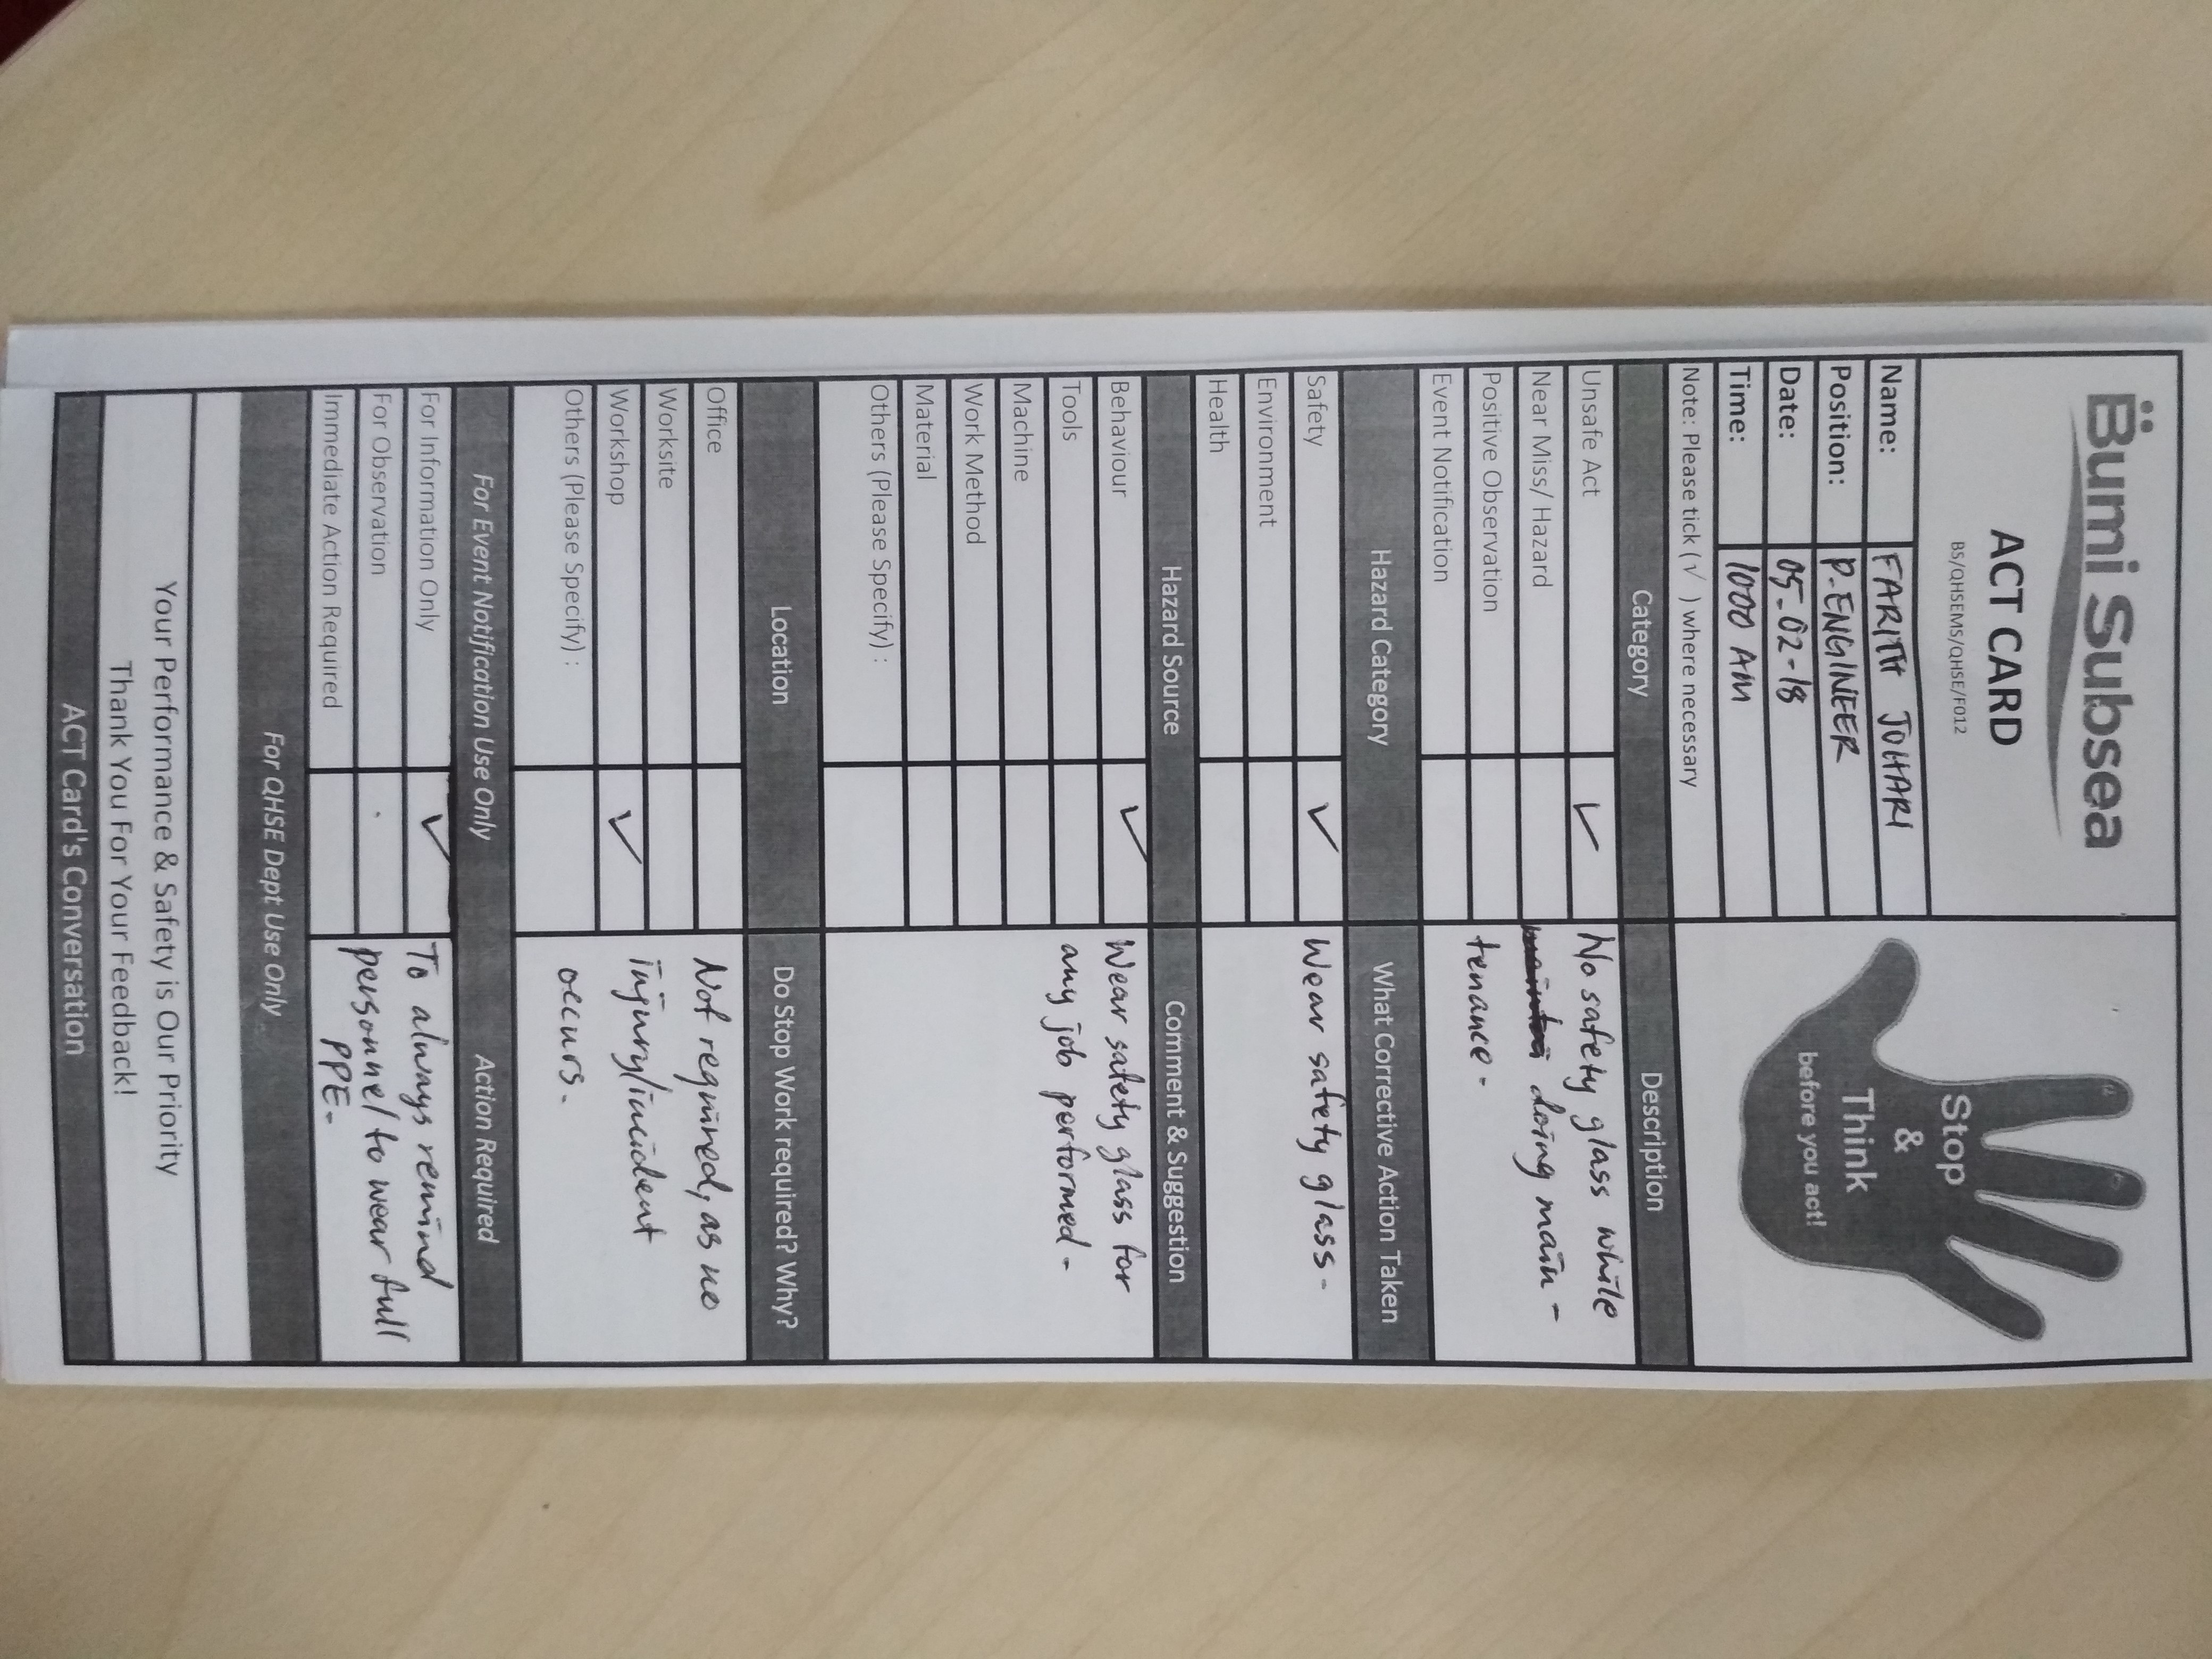 Bumi Subsea
ACT CARD
BS/QHSEMS/QHSE/F012
Stop
&
Think
before you act!
Name: FARITH JOHARI
Position: P. ENGINEER
Date: 05-02-18
Time: 1000 AM
Note: Please tick (√ ) where necessary
Category Description
Unsafe Act ✓ No safety glass while
Near Miss/ Hazard doing main-
Positive Observation tenance.
Event Notification
Hazard Category What Corrective Action Taken
Safety ✓ Wear safety glass.
Environment
Health
Hazard Source Comment & Suggestion
Behaviour ✓ Wear safety glass for
Tools any job performed.
Machine
Work Method
Material
Others (Please Specify) :
Location Do Stop Work required? Why?
Office Not required, as no
Worksite injury/incident
Workshop ✓ occurs.
Others (Please Specify) :
For Event Notification Use Only Action Required
For Information Only ✓ To always remind
For Observation personnel to wear full
Immediate Action Required PPE.
For QHSE Dept Use Only
Your Performance & Safety is Our Priority
Thank You For Your Feedback!
ACT Card's Conversation